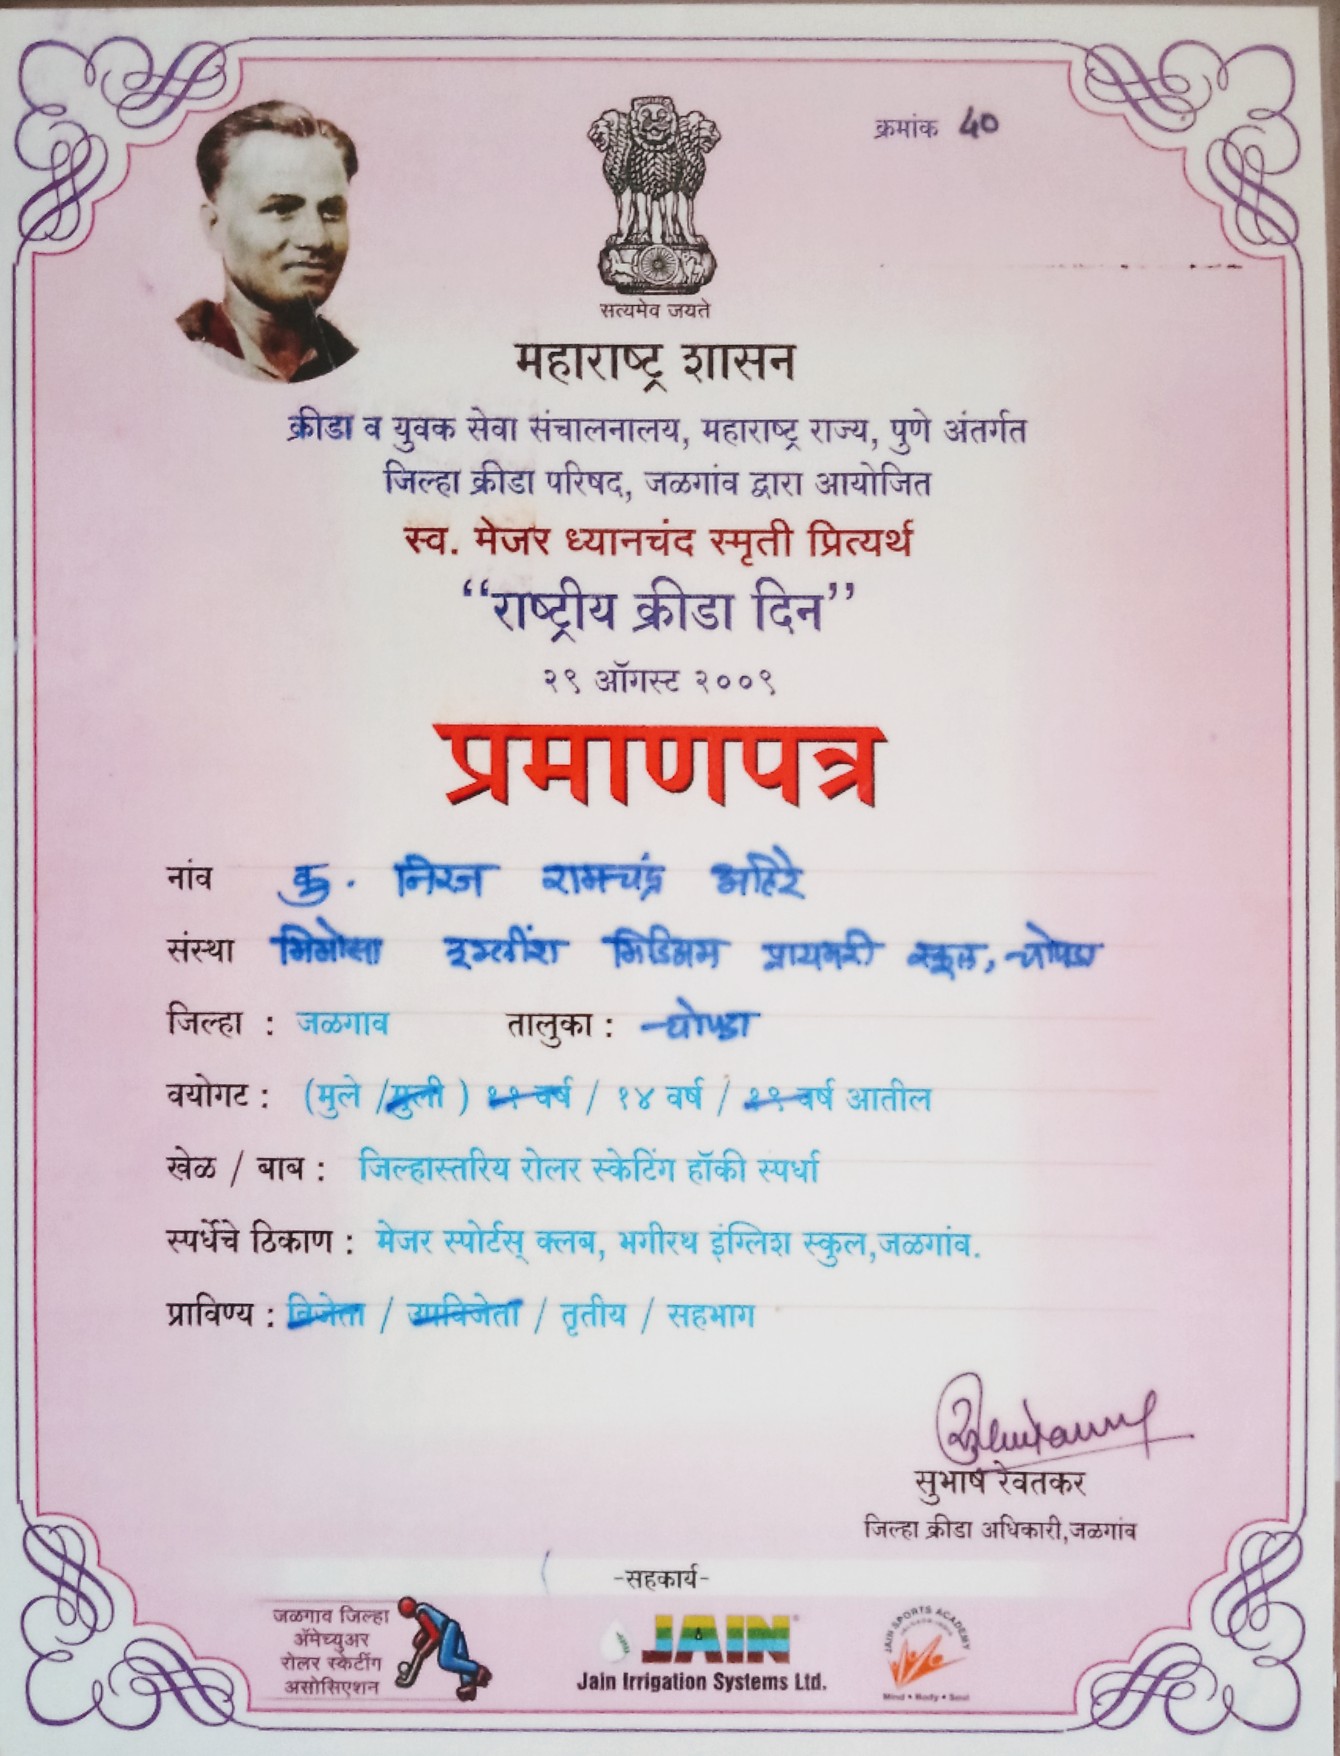 क्रमांक 40
सत्यमेव जयते
महाराष्ट्र शासन
क्रीडा व युवक सेवा संचालनालय, महाराष्ट्र राज्य, पुणे अंतर्गत
जिल्हा क्रीडा परिषद, जळगांव द्वारा आयोजित
स्व. मेजर ध्यानचंद स्मृती प्रित्यर्थ
“राष्ट्रीय क्रीडा दिन”
२९ ऑगस्ट २००९
प्रमाणपत्र
नांव कु. निरज रामचंद्र अहिरे
संस्था मिमोसा इंग्लींश मिडिअम प्रायमरी स्कूल, चोपडा
जिल्हा : जळगाव तालुका : चोपडा
वयोगट : (मुले / मुली ) ११ वर्ष / १४ वर्ष / १९ वर्ष आतील
खेळ / बाब : जिल्हास्तरिय रोलर स्केटिंग हॉकी स्पर्धा
स्पर्धेचे ठिकाण : मेजर स्पोर्टस् क्लब, भगीरथ इंग्लिश स्कुल,जळगांव.
प्राविण्य : विजेता / उपविजेता / तृतीय / सहभाग
सुभाष रेवतकर
जिल्हा क्रीडा अधिकारी,जळगांव
-सहकार्य-
जळगाव जिल्हा
ॲमेच्युअर
रोलर स्केटींग
असोसिएशन
JAIN
Jain Irrigation Systems Ltd.
JAIN SPORTS ACADEMY
Mind • Body • Soul